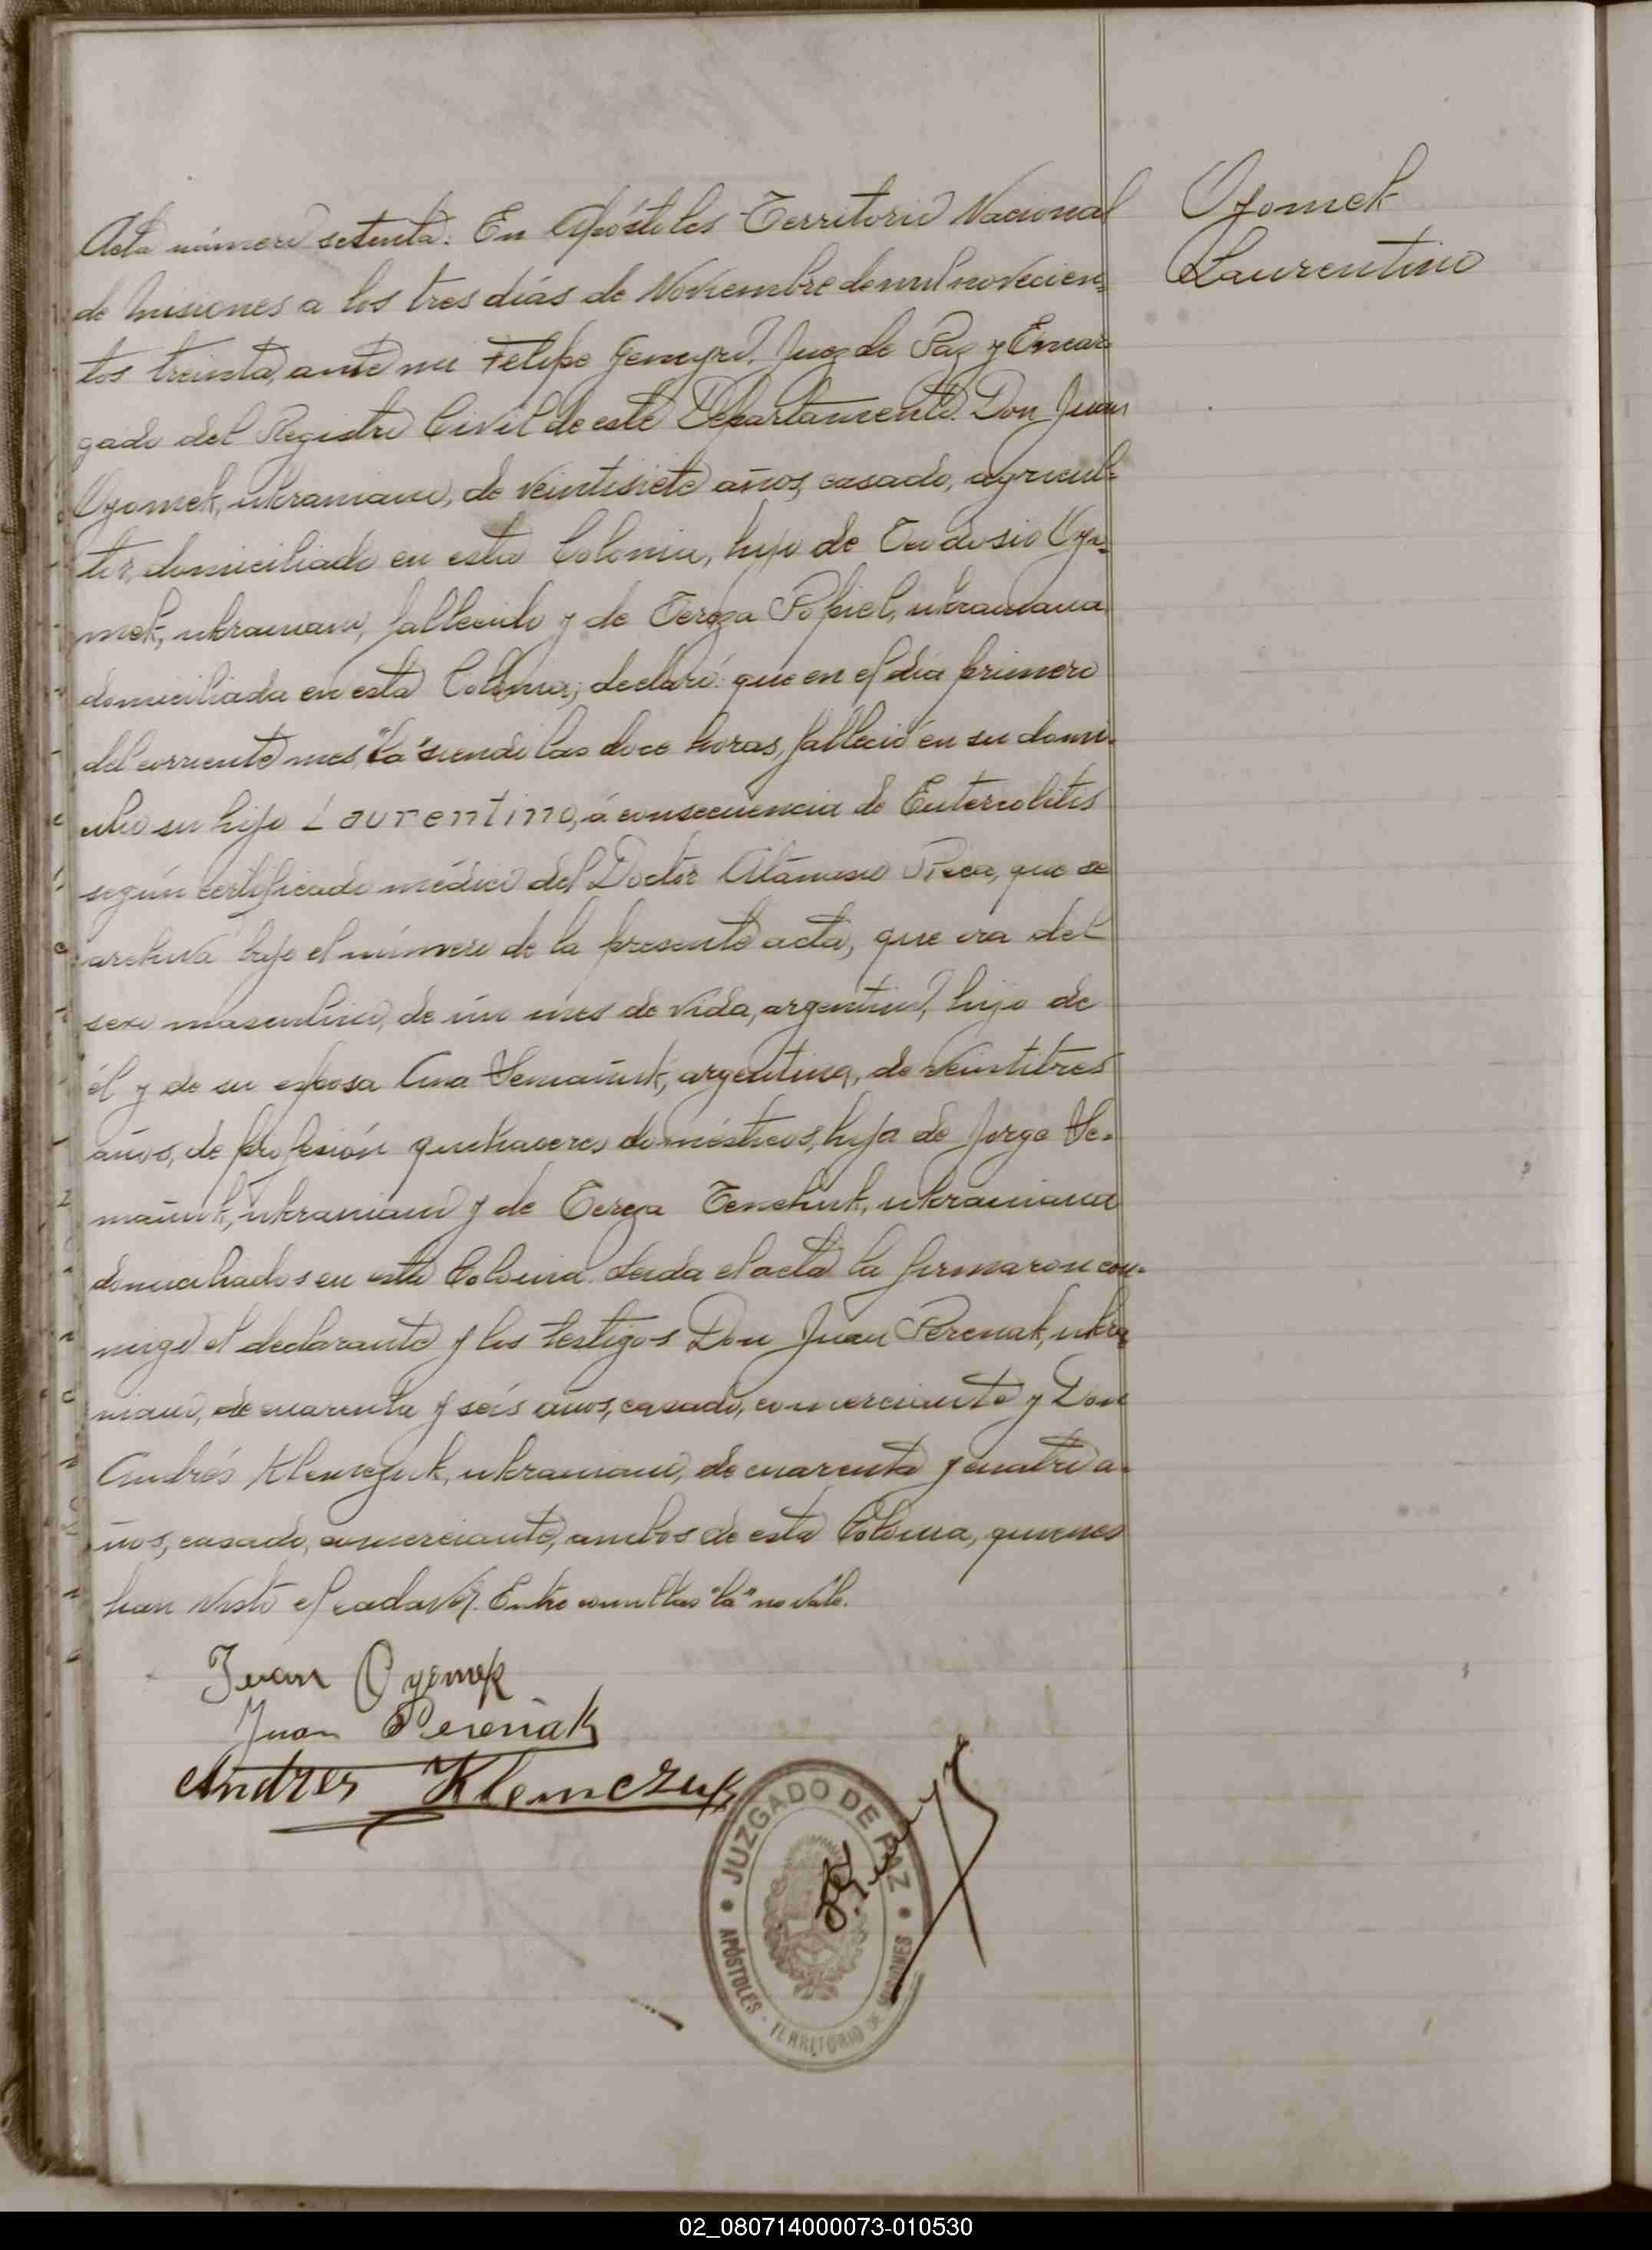 Oyomek
Laurentino
Acta número setenta: En Apóstoles Territorio Nacional
de Misiones a los tres días de Noviembre de mil novecien=
tos treinta, ante mi Felipe Juez de Paz y Encar=
gado del Registro Civil de este Departamento. Don Juan
Oyomek, ukraniano, de veintisiete años, casado, agricul=
tor, domiciliado en esta Colonia, hijo de Teodosio Oyo=
mek, ukraniano, fallecido y de Tereza Popiel, ukraniana
domiciliada en esta Colonia; declaró: que en el día primero
del corriente mes "la" siendo las doce horas, falleció en su domi-
cilio su hijo Laurentino, á consecuencia de Enterocolitis
según certificado médico del Doctor Atanasio que se
archiva bajo el número de la presente acta, que era del
sexo masculino, de un mes de vida, argentino, hijo de
él y de su esposa Ana Semañuk, argentina, de veintitres
años, de profesión quehaceres domésticos, hija de Jorge Se=
mañuk, ukraniano y de Tereza Tenchuk, ukraniana
domiciliados en esta Colonia. Leida el acta la firmaron con-
migo el declarante y los testigos Don Juan Pereñak, ukra=
niano, de cuarenta y seis años, casado, comerciante y Don
Andrés Klemczuk, ukraniano, de cuarenta y cuatro a=
ños, casado, comerciante, ambos de esta Colonia, quienes
han visto el cadaver. Entre comillas "la" no vale.
Juan Oyomek
Juan Pereñak
Andres Klemczuk
JUZGADO DE PAZ
APÓSTOLES - TERRITORIO DE MISIONES
02_080714000073-010530